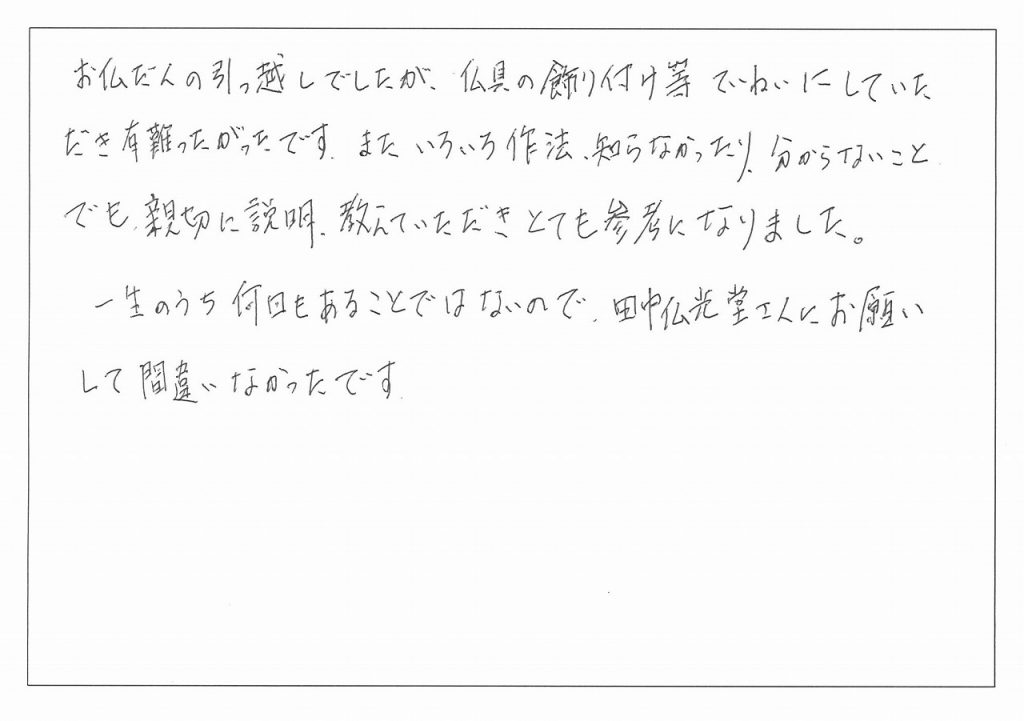 お仏だんの引っ越しでしたが、仏具の飾り付け等ていねいにしていた
だき有難ったがったです。また いろいろ作法、知らなかったり、分からないこと
でも、親切に説明、教えていただきとても参考になりました。
一生のうち何回もあることではないので、田中仏光堂さんにお願い
して間違いなかったです。